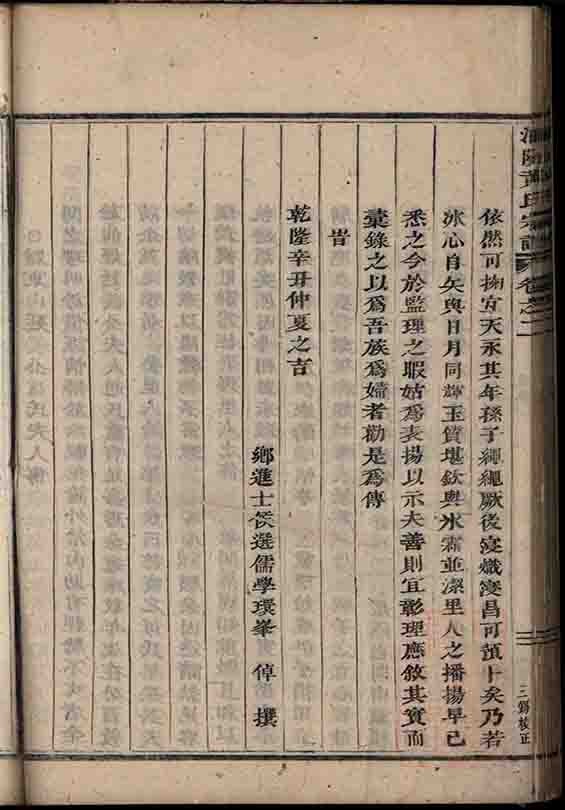 黃氏宗譜 卷之二
三錫校正
依然可掬宜天永其年孫子繩繩厥後寖熾寖昌可預卜矣乃若
冰心自矢與日月同輝玉質堪欽與氷霜並潔里人之播揚早已
悉之今於監理之暇姑為表揚以示夫善則宜彰理應敘其實而
彙錄之以為吾族為嬙者勸是為傳
旹
乾隆辛丑仲夏之吉
鄉進士候選儒學環峯 倬 撰